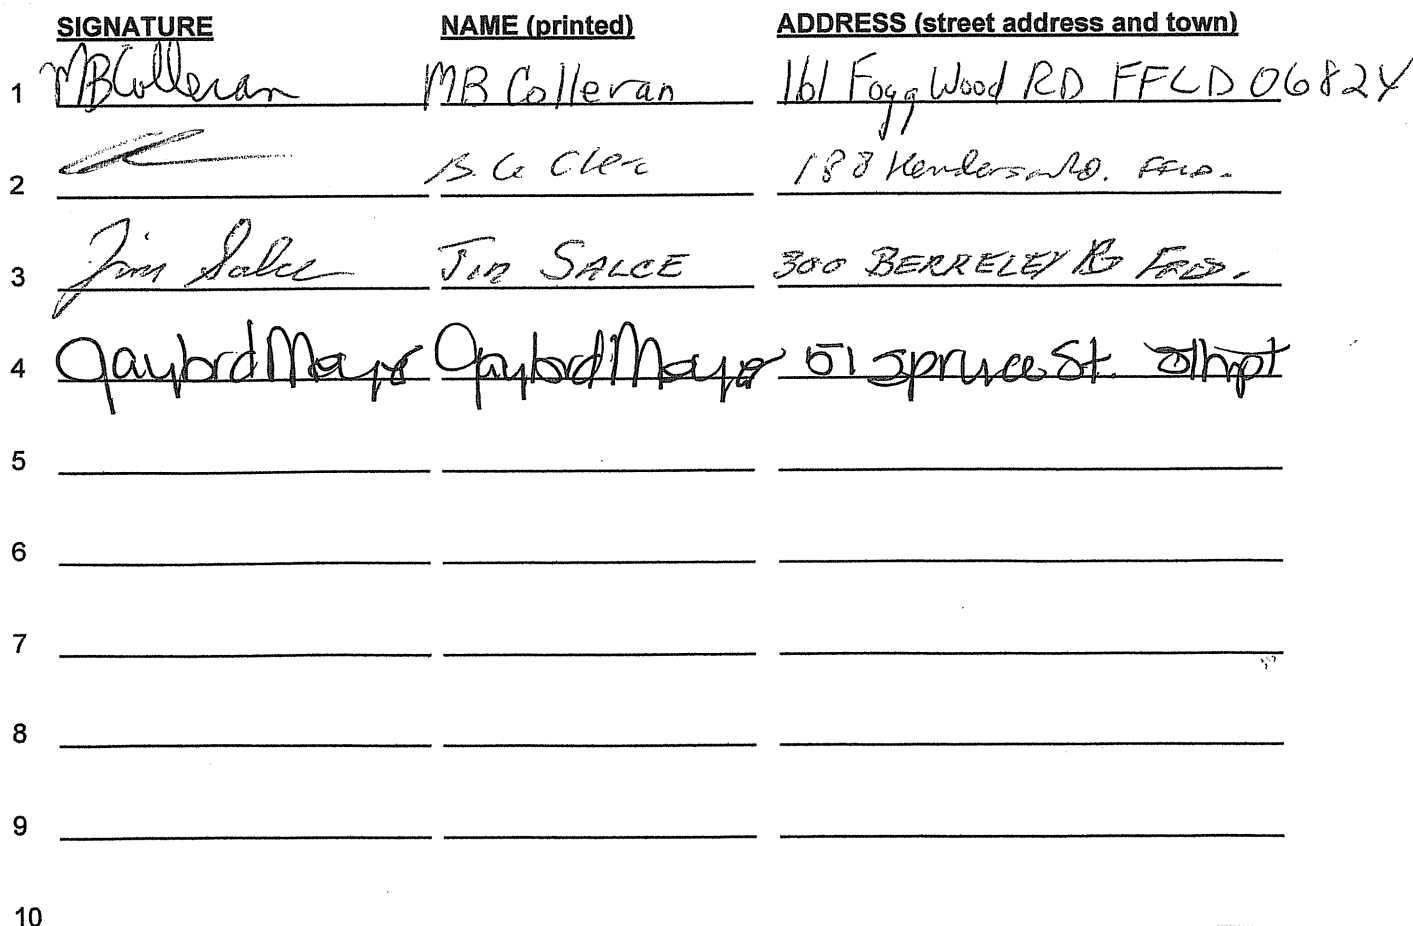 SIGNATURE NAME (printed) ADDRESS (street address and town)
1 MBColleran MB Colleran 161 Fogg Wood RD FFLD 06824
2 188 Henderson Rd. FFLD.
3 Jim Salce Jim SALCE 300 BERKELEY RD FFLD.
4 Gaylord Meyer Gaylord Meyer 51 Spruce St Sthpt
5
6
7
8
9
10